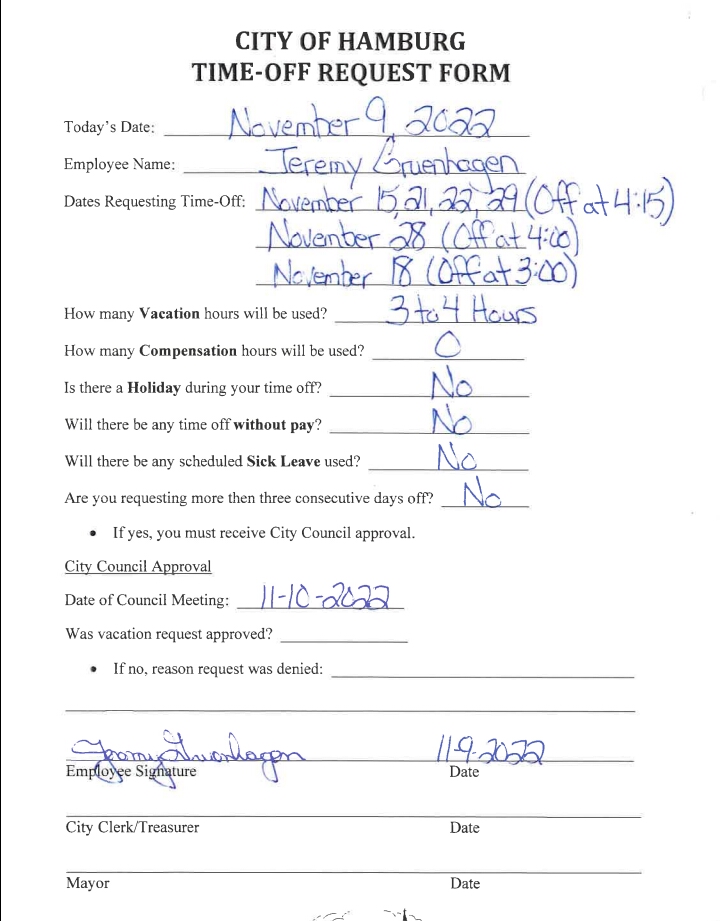 CITY OF HAMBURG
TIME-OFF REQUEST FORM
Today's Date: November 9, 2022
Employee Name: Jeremy Gruenhagen
Dates Requesting Time-Off: November 15, 21, 22, 29 (Off at 4:15)
November 28 (Off at 4:00)
November 18 (Off at 3:00)
How many Vacation hours will be used? 3 to 4 Hours
How many Compensation hours will be used? 0
Is there a Holiday during your time off? No
Will there be any time off without pay? No
Will there be any scheduled Sick Leave used? No
Are you requesting more then three consecutive days off? No
• If yes, you must receive City Council approval.
City Council Approval
Date of Council Meeting: 11-10-2022
Was vacation request approved?
• If no, reason request was denied:
Jeremy Gruenhagen 11-9-2022
Employee Signature Date
City Clerk/Treasurer Date
Mayor Date